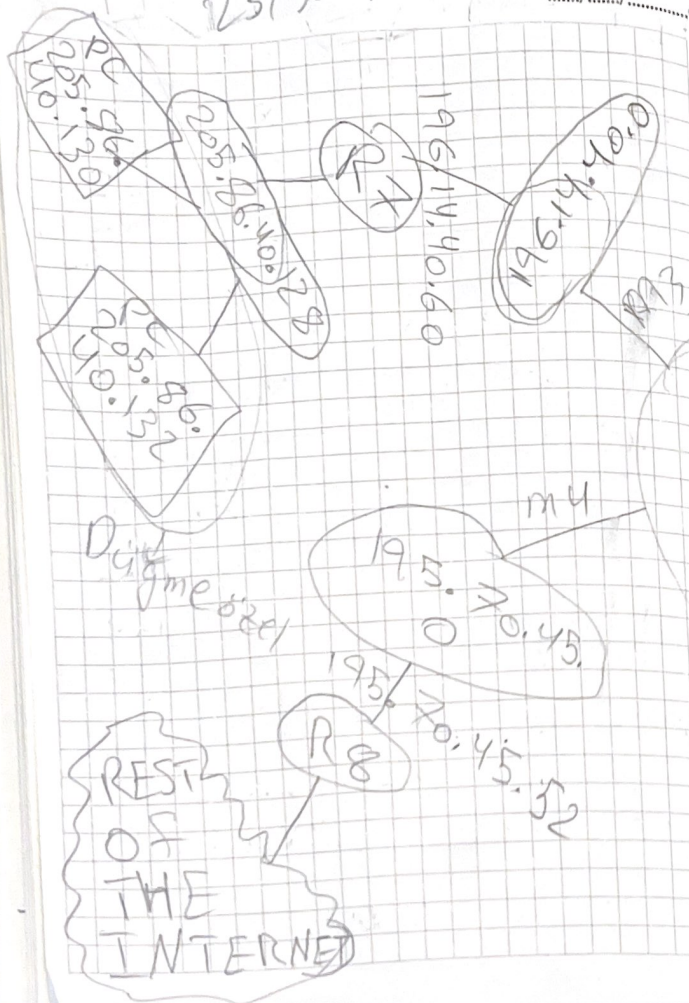 PC
205.96.
40.130
205.96.40.128
R7
196.14.40.60
196.14.40.0
PC
205.96.
40.132
Düğme özel
m4
195.70.45.
0
195.70.45.52
R8
REST
OF
THE
INTERNET